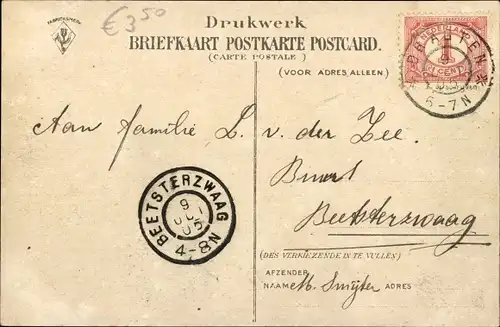 FABRIEKSMERK
€ 3 50
Drukwerk
BRIEFKAART POSTKARTE POSTCARD.
(CARTE POSTALE)
(VOOR ADRES ALLEEN)
NEDERLAND
1
CENT
DRACHTEN
6-7N
Aan Familie L. v. der Zee.
Buurt
Beetsterzwaag
BEETSTERZWAAG
9
05
4-8N
(DES VERKIEZENDE IN TE VULLEN)
AFZENDER
NAAM M. Smijter ADRES